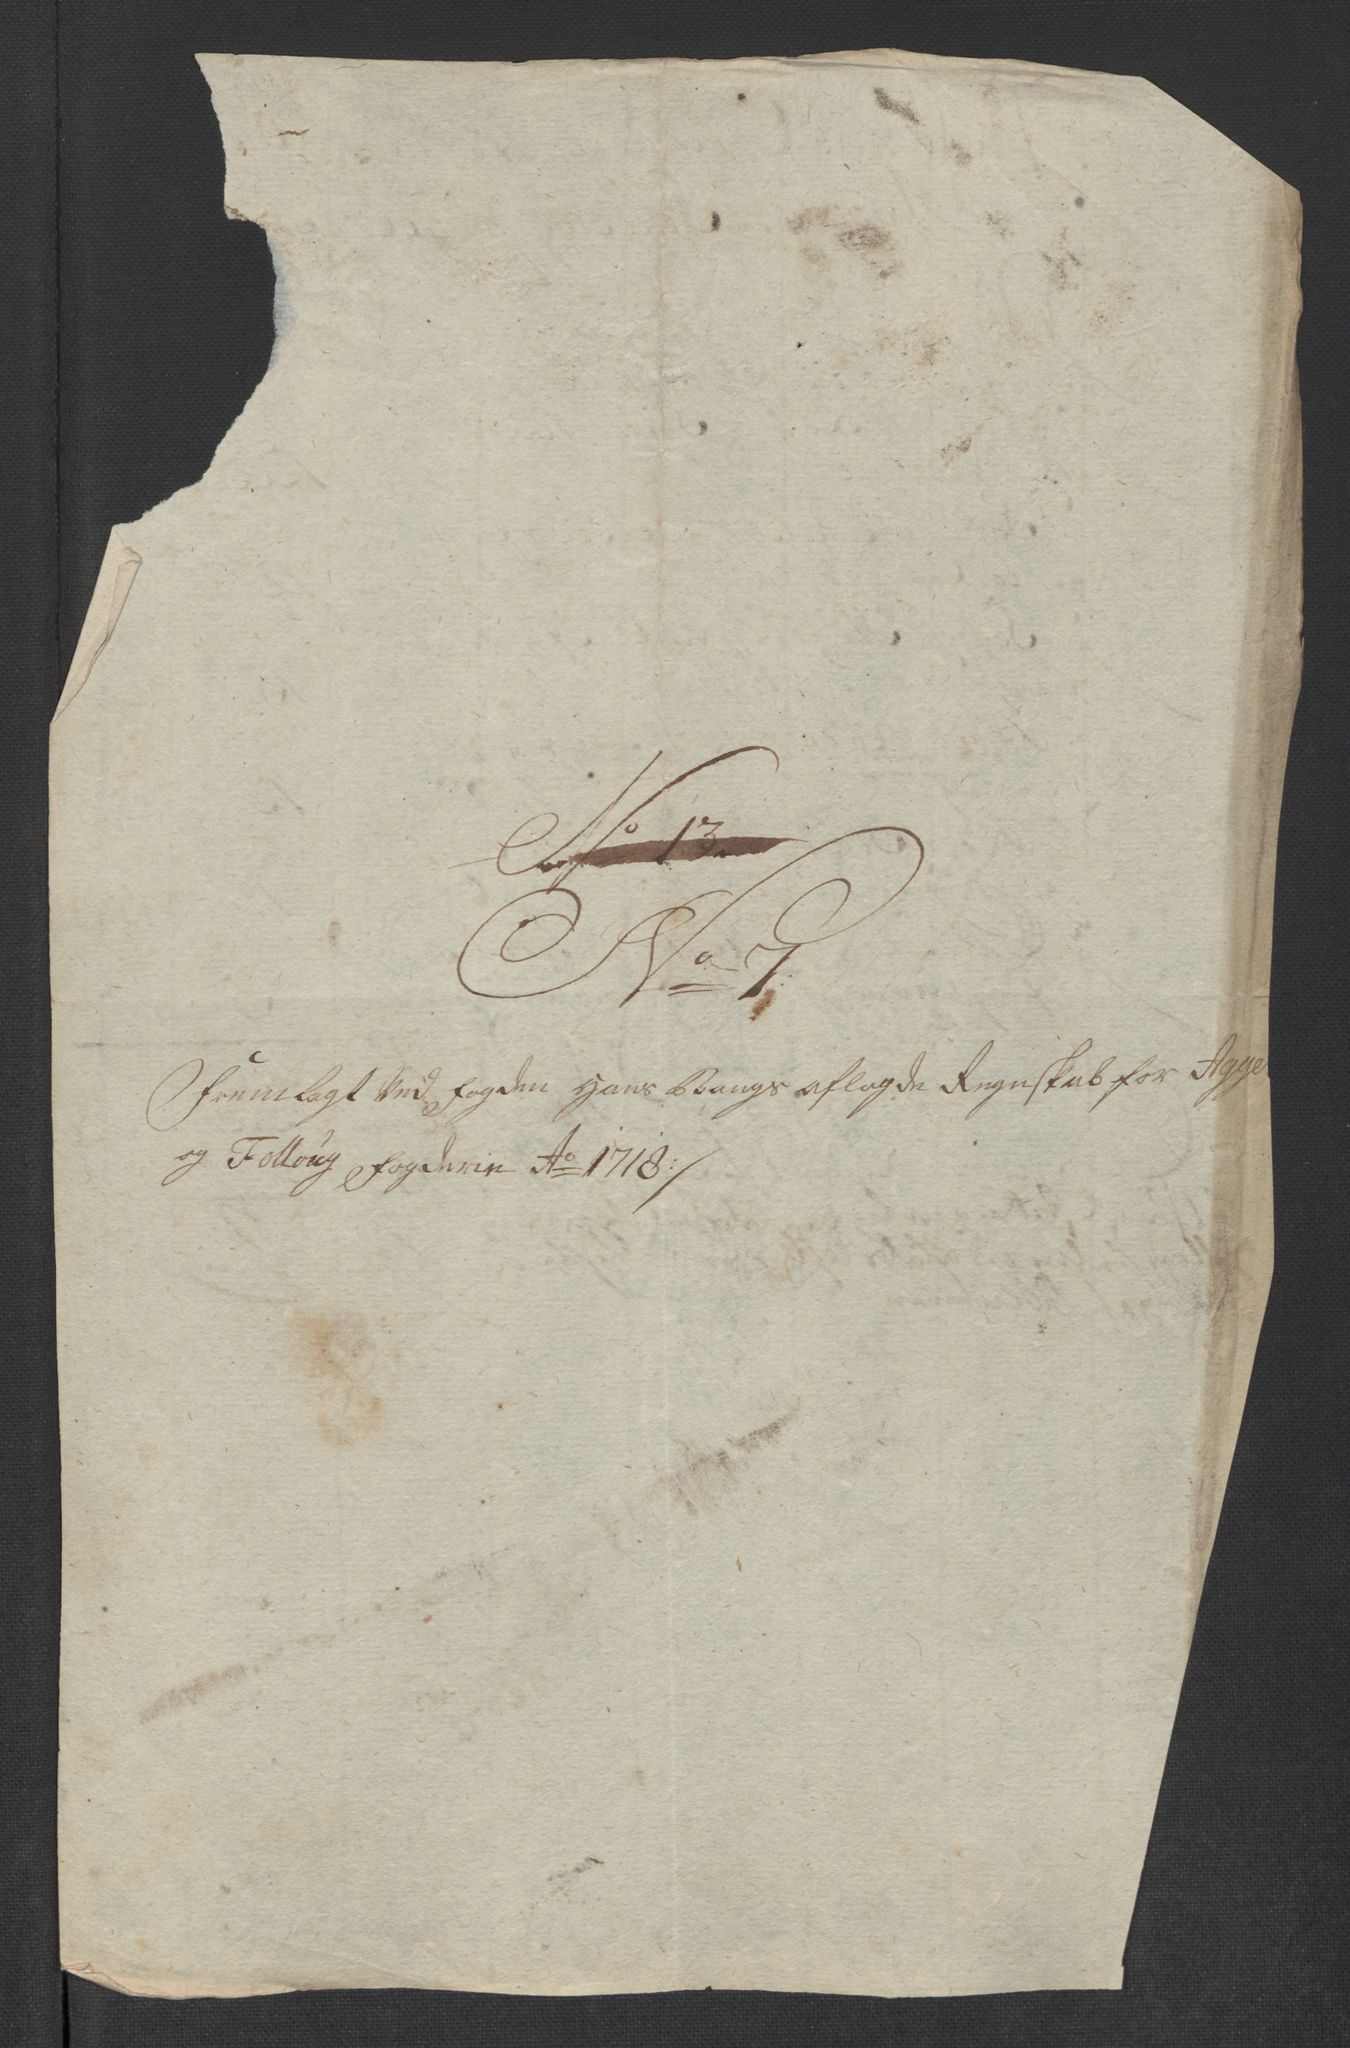 No 13.
No 7.
Fremlagt Ved fogden Hans Bangs aflagde Regnskab for Agge
og Folloug fogderie Ao 1718:/